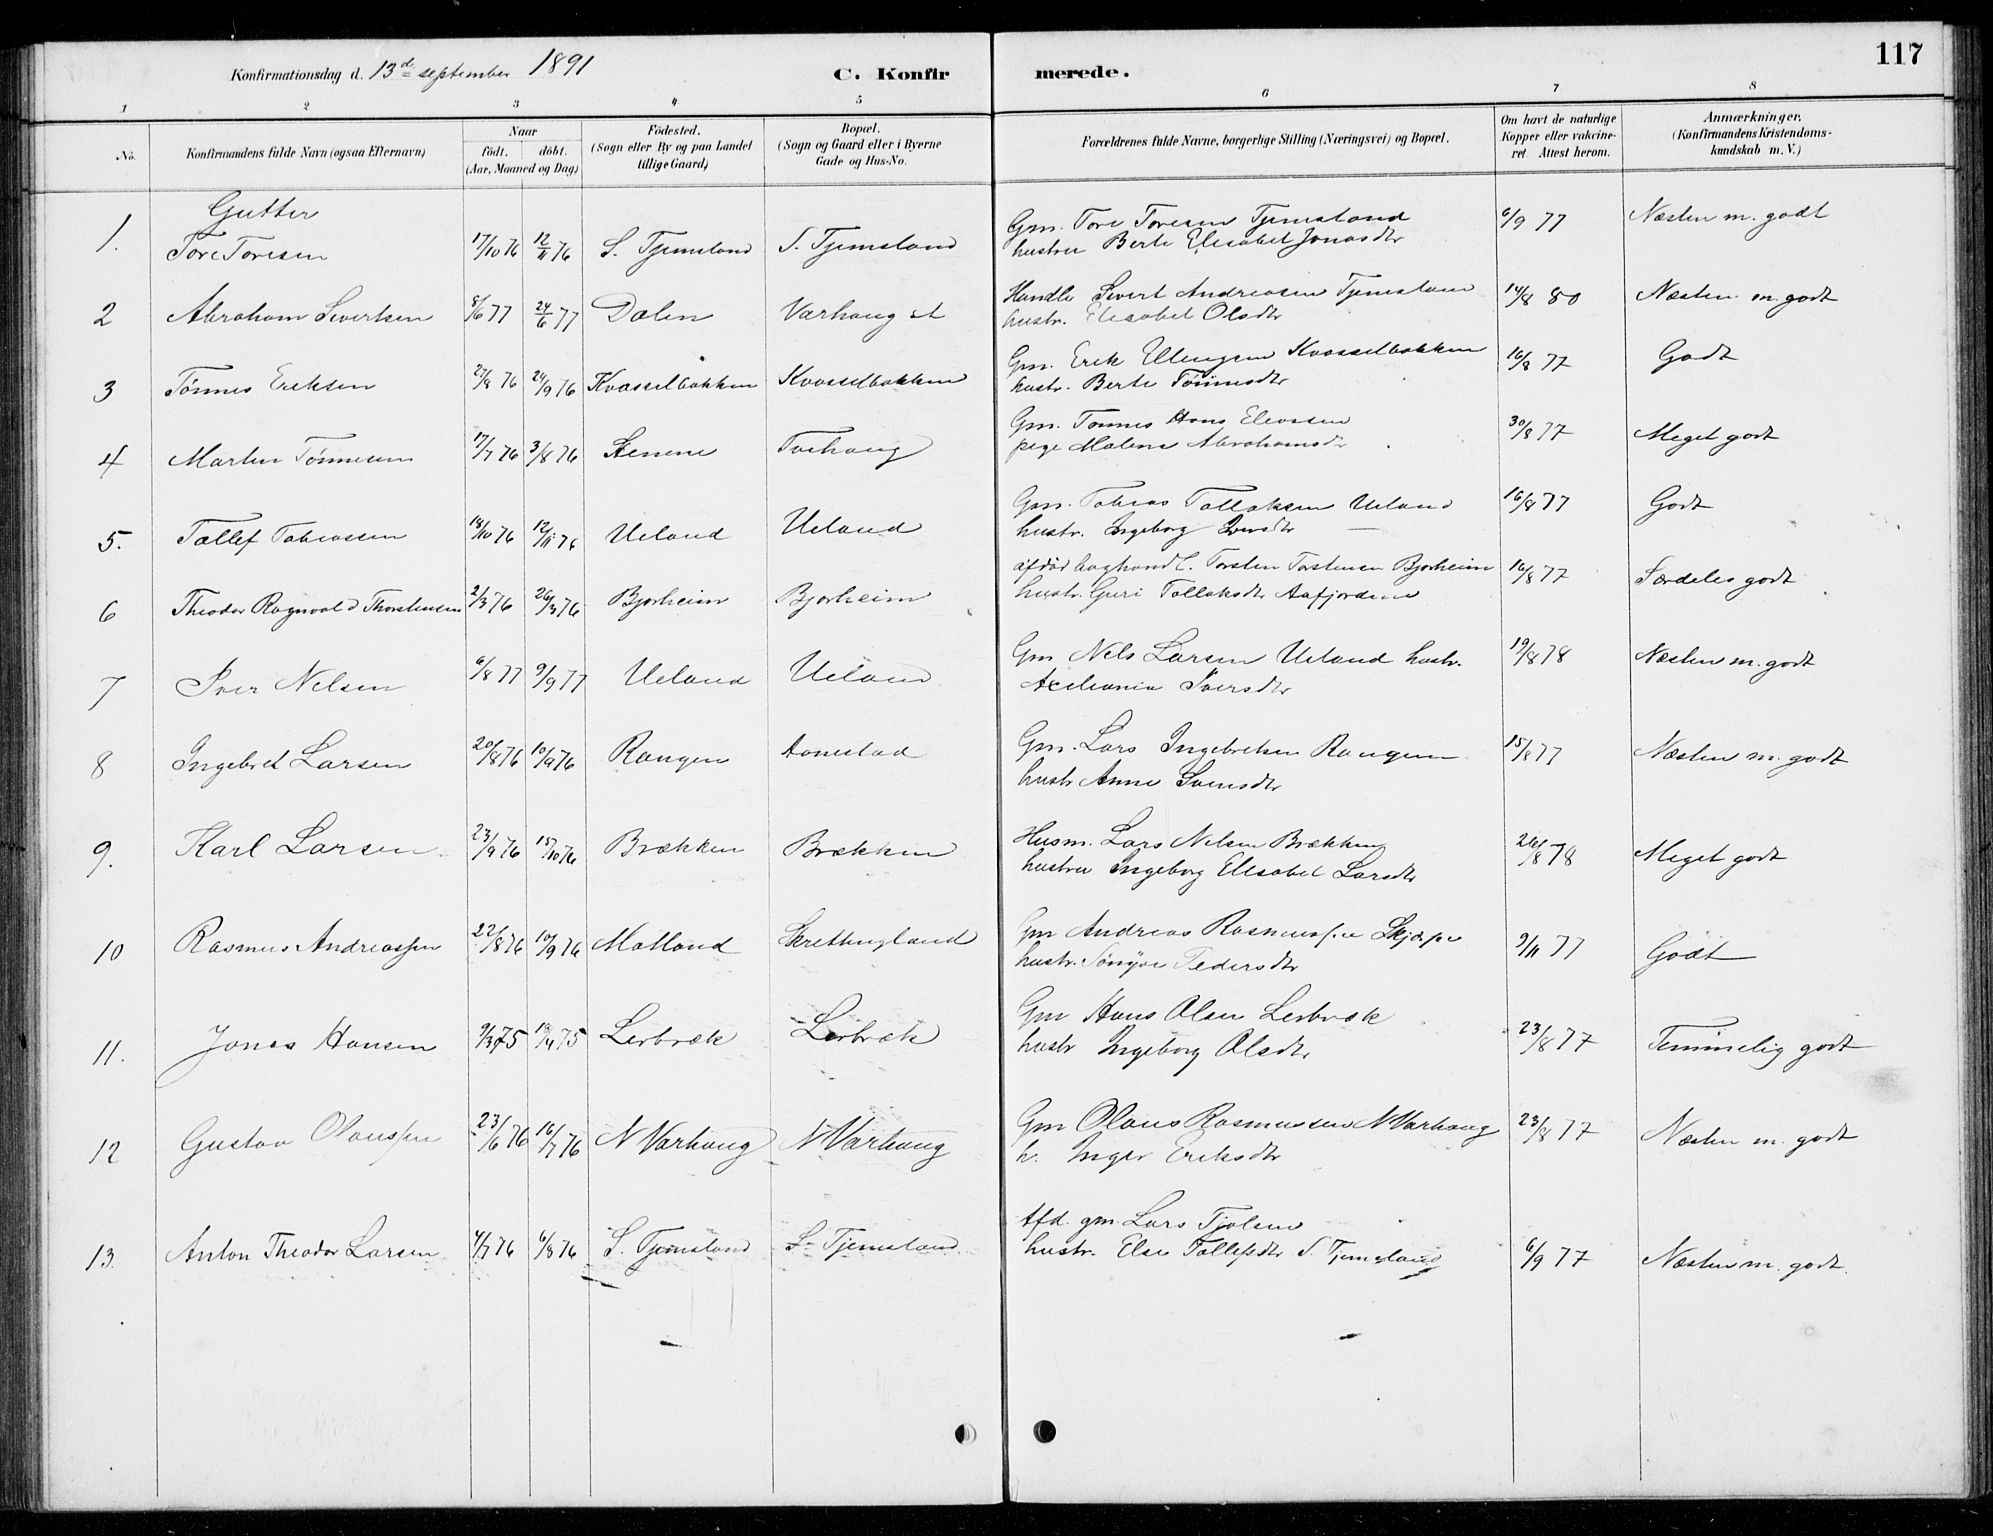 117
Konfirmationsdag d. 13d september 1891 C. Konfirmerede.
1 2 3 4 5 6 7 8
No. Konfirmandens fulde Navn (ogsaa Efternavn) Naar födt. döbt. (Aar, Maaned og Dag) Födested. (Sogn eller By og paa Landet tillige Gaard) Bopæl. (Sogn og Gaard eller i Byerne Gade og Hus-No. Forældrenes fulde Navne, borgerlige Stilling (Næringsvei) og Bopæl. Om havt de naturlige Kopper eller vakcineret. Attest herom. Anmærkninger. (Konfirmandens Kristendomskundskab m. V.)
Gutter
1. Tore Toresen 17/10 76 12/11 76 S. Tjemsland S. Tjemsland Gm. Tore Toresen Tjemsland 6/9 77 Næsten m. godt
hustru Berte Elisabet Jonasdtr
2 Abraham Sivertsen 8/6 77 24/6 77 Dalen Varhaug st Handle Sivert Andreasen Tjemsland 14/8 80 Næsten m. godt
hustr. Elisabet Olsdtr
3 Tönnes Eriksen 27/8 76 24/9 76 Kvasselbakken Kvasselbakken Gm. Erik Kvasselbakken 16/8 77 Godt
hustr. Berte Tönnesdtr
4 Martin Tönnesen 17/7 76 3/8 76 Stenene Gm. Tönnes Hans Eleasen 30/8 77 Meget godt
pige Malene Abrahamsdtr
5. Tollef Tobiassen 18/10 76 12/11 76 Ueland Ueland Gm. Tobias Tollaksen Ueland 16/8 77 Godt
hustr. Ingeborg
6 Theodor Ragnvald Thorstensen 2/3 76 26/3 76 Bjorheim Bjorheim afdöd Torsten Tostensen Bjorheim 16/8 77 Særdeles godt
hustr. Guri Tollaksdtr Aafjordene
7 Iver Nelsen 6/8 77 9/9 77 Ueland Ueland Gm Nels Larsen Ueland hustr. 19/8 78 Næsten m. godt
Axeliania Iversdtr
8 Ingebret Larsen 20/8 76 10/9 76 Rangen Aanestad Gm. Lars Ingebretsen Rangen 15/8 77 Næsten m. godt
hustr Anne Svensdtr
9. Karl Larsen 23/9 76 15/10 76 Brækken Brækken Husm. Lars Nelsen Brækken 26/8 78 Meget godt
hustru Ingeborg Elisabet Larsdtr
10 Rasmus Andreassen 22/8 76 10/9 76 Motland Skretingland Gm Andreas Rasmussen 9/11 77 Godt
hustr. Söngve Pedersdtr
11. Jonas Hansen 9/3 75 18/4 75 Lerbræk Lerbræk Gm Hans Olsen Lerbræk 23/8 77 Temmelig godt
hustr Ingeborg Olsdtr
12 Gustav Olaussen 23/6 76 16/7 76 N Varhaug N Varhaug Gm Olaus Rasmussen N Varhaug 23/8 77 Næsten m. godt
h. Inger Eriksdtr
13. Anton Theodor Larsen 4/7 76 6/8 76 S. Tjemsland S. Tjemsland Afd. gm. Lars Tjölsen 6/9 77 Næsten m. godt.
hustr. Else Tollefsdtr S. Tjemsland